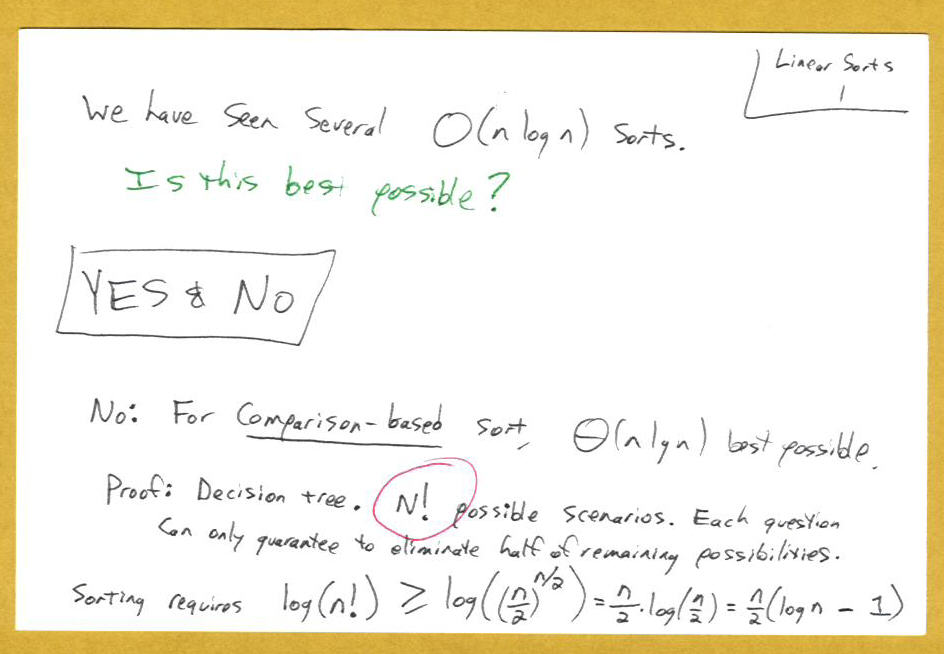 Linear Sorts
1
We have seen several O(n log n) sorts.
Is this best possible?
YES & NO
No: For Comparison-based sort, Θ(n lg n) best possible.
Proof: Decision tree. N! possible scenarios. Each question
can only guarantee to eliminate half of remaining possibilities.
Sorting requires log(n!) ≥ log((n/2)^n/2) = n/2·log(n/2) = n/2(log n - 1)